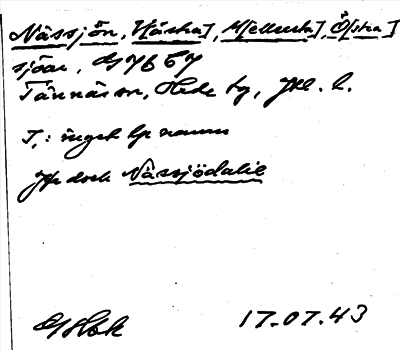 Nässjön, V[ästra], M[ellersta], Ö[stra]
sjöar, G7b67
Tännäs sn, Hede tg, Jtl. l.
T.: inget bp namn
Jfr dock Nässjödalie
17.07.43